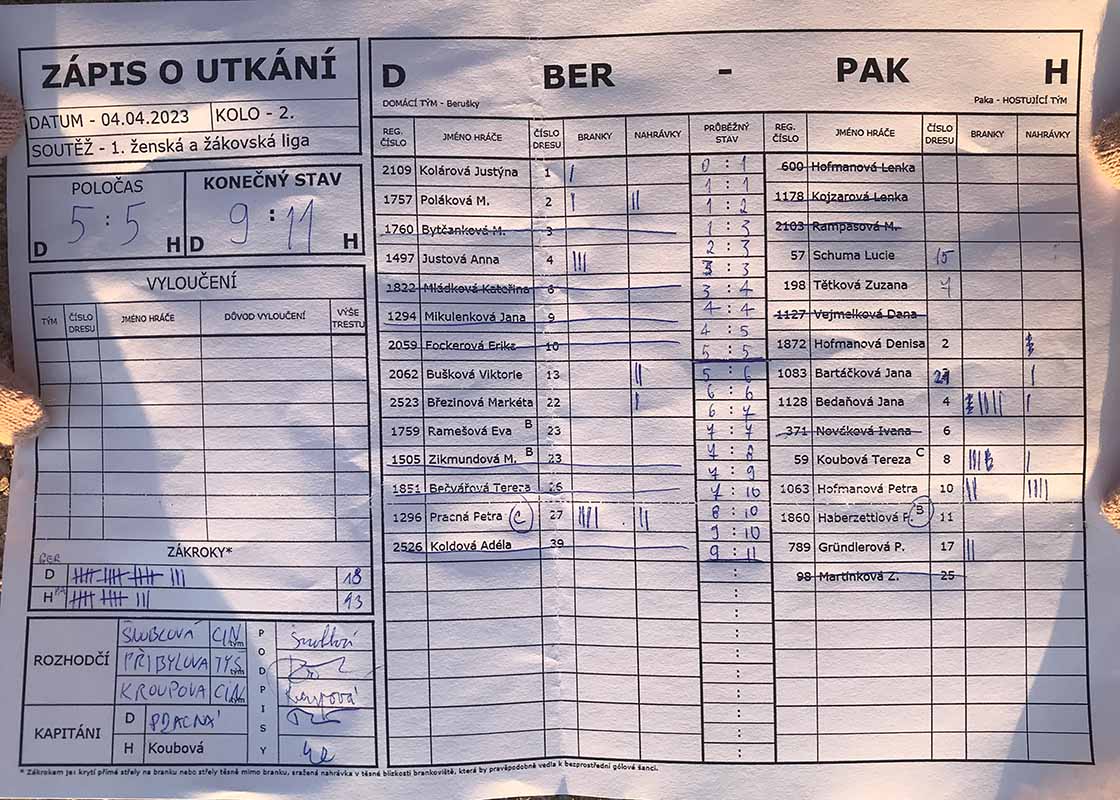 ZÁPIS O UTKÁNÍ
DATUM - 04.04.2023 KOLO - 2.
SOUTĚŽ - 1. ženská a žákovská liga
POLOČAS KONEČNÝ STAV
D 5 : 5 H D 9 : 11 H
VYLOUČENÍ
TÝM ČÍSLO DRESU JMÉNO HRÁČE DŮVOD VYLOUČENÍ VÝŠE TRESTU
ZÁKROKY*
BER
D 18
H 13
ROZHODČÍ
ŠLUBCOVÁ ČIN tým
PŘIBYLOVA TYS tým
KROUPOVA ČIN tým
KAPITÁNI
D PRACNÁ
H Koubová
PODPISY
D BER - PAK H
DOMÁCÍ TÝM - Berušky Paka - HOSTUJÍCÍ TÝM
REG. ČÍSLO JMÉNO HRÁČE ČÍSLO DRESU BRANKY NAHRÁVKY PRŮBĚŽNÝ STAV REG. ČÍSLO JMÉNO HRÁČE ČÍSLO DRESU BRANKY NAHRÁVKY
2109 Kolárová Justýna 1
1757 Poláková M. 2
1760 Bytčanková M. 3
1497 Justová Anna 4
1822 Mládková Kateřina 6
1294 Mikulenková Jana 9
2059 Fockerová Erika 10
2062 Bušková Viktorie 13
2523 Březinová Markéta 22
1759 Ramešová Eva B 23
1505 Zikmundová M. B 23
1851 Bečvářová Tereza 26
1296 Pracná Petra C 27
2526 Koldová Adéla 39
0 : 1
1 : 1
1 : 2
1 : 3
2 : 3
3 : 3
3 : 4
4 : 4
4 : 5
5 : 5
5 : 6
6 : 6
6 : 7
7 : 7
7 : 8
7 : 9
7 : 10
8 : 10
9 : 10
9 : 11
600 Hofmanová Lenka
1178 Kojzarová Lenka
2103 Rampasová M.
57 Schuma Lucie 15
198 Tětková Zuzana 7
1127 Vejmelková Dana
1872 Hofmanová Denisa 2
1083 Bartáčková Jana
1128 Bedaňová Jana 4
371 Nováková Ivana 6
59 Koubová Tereza C 8
1063 Hofmanová Petra 10
1860 Haberzettlová P. B 11
789 Gründlerová P. 17
98 Martinková Z. 25
* Zákrokem je: krytí přímé střely na branku nebo střely těsně mimo branku, sražená nahrávka v těsné blízkosti brankoviště, která by pravěpodobně vedla k bezprostřední gólové šanci.